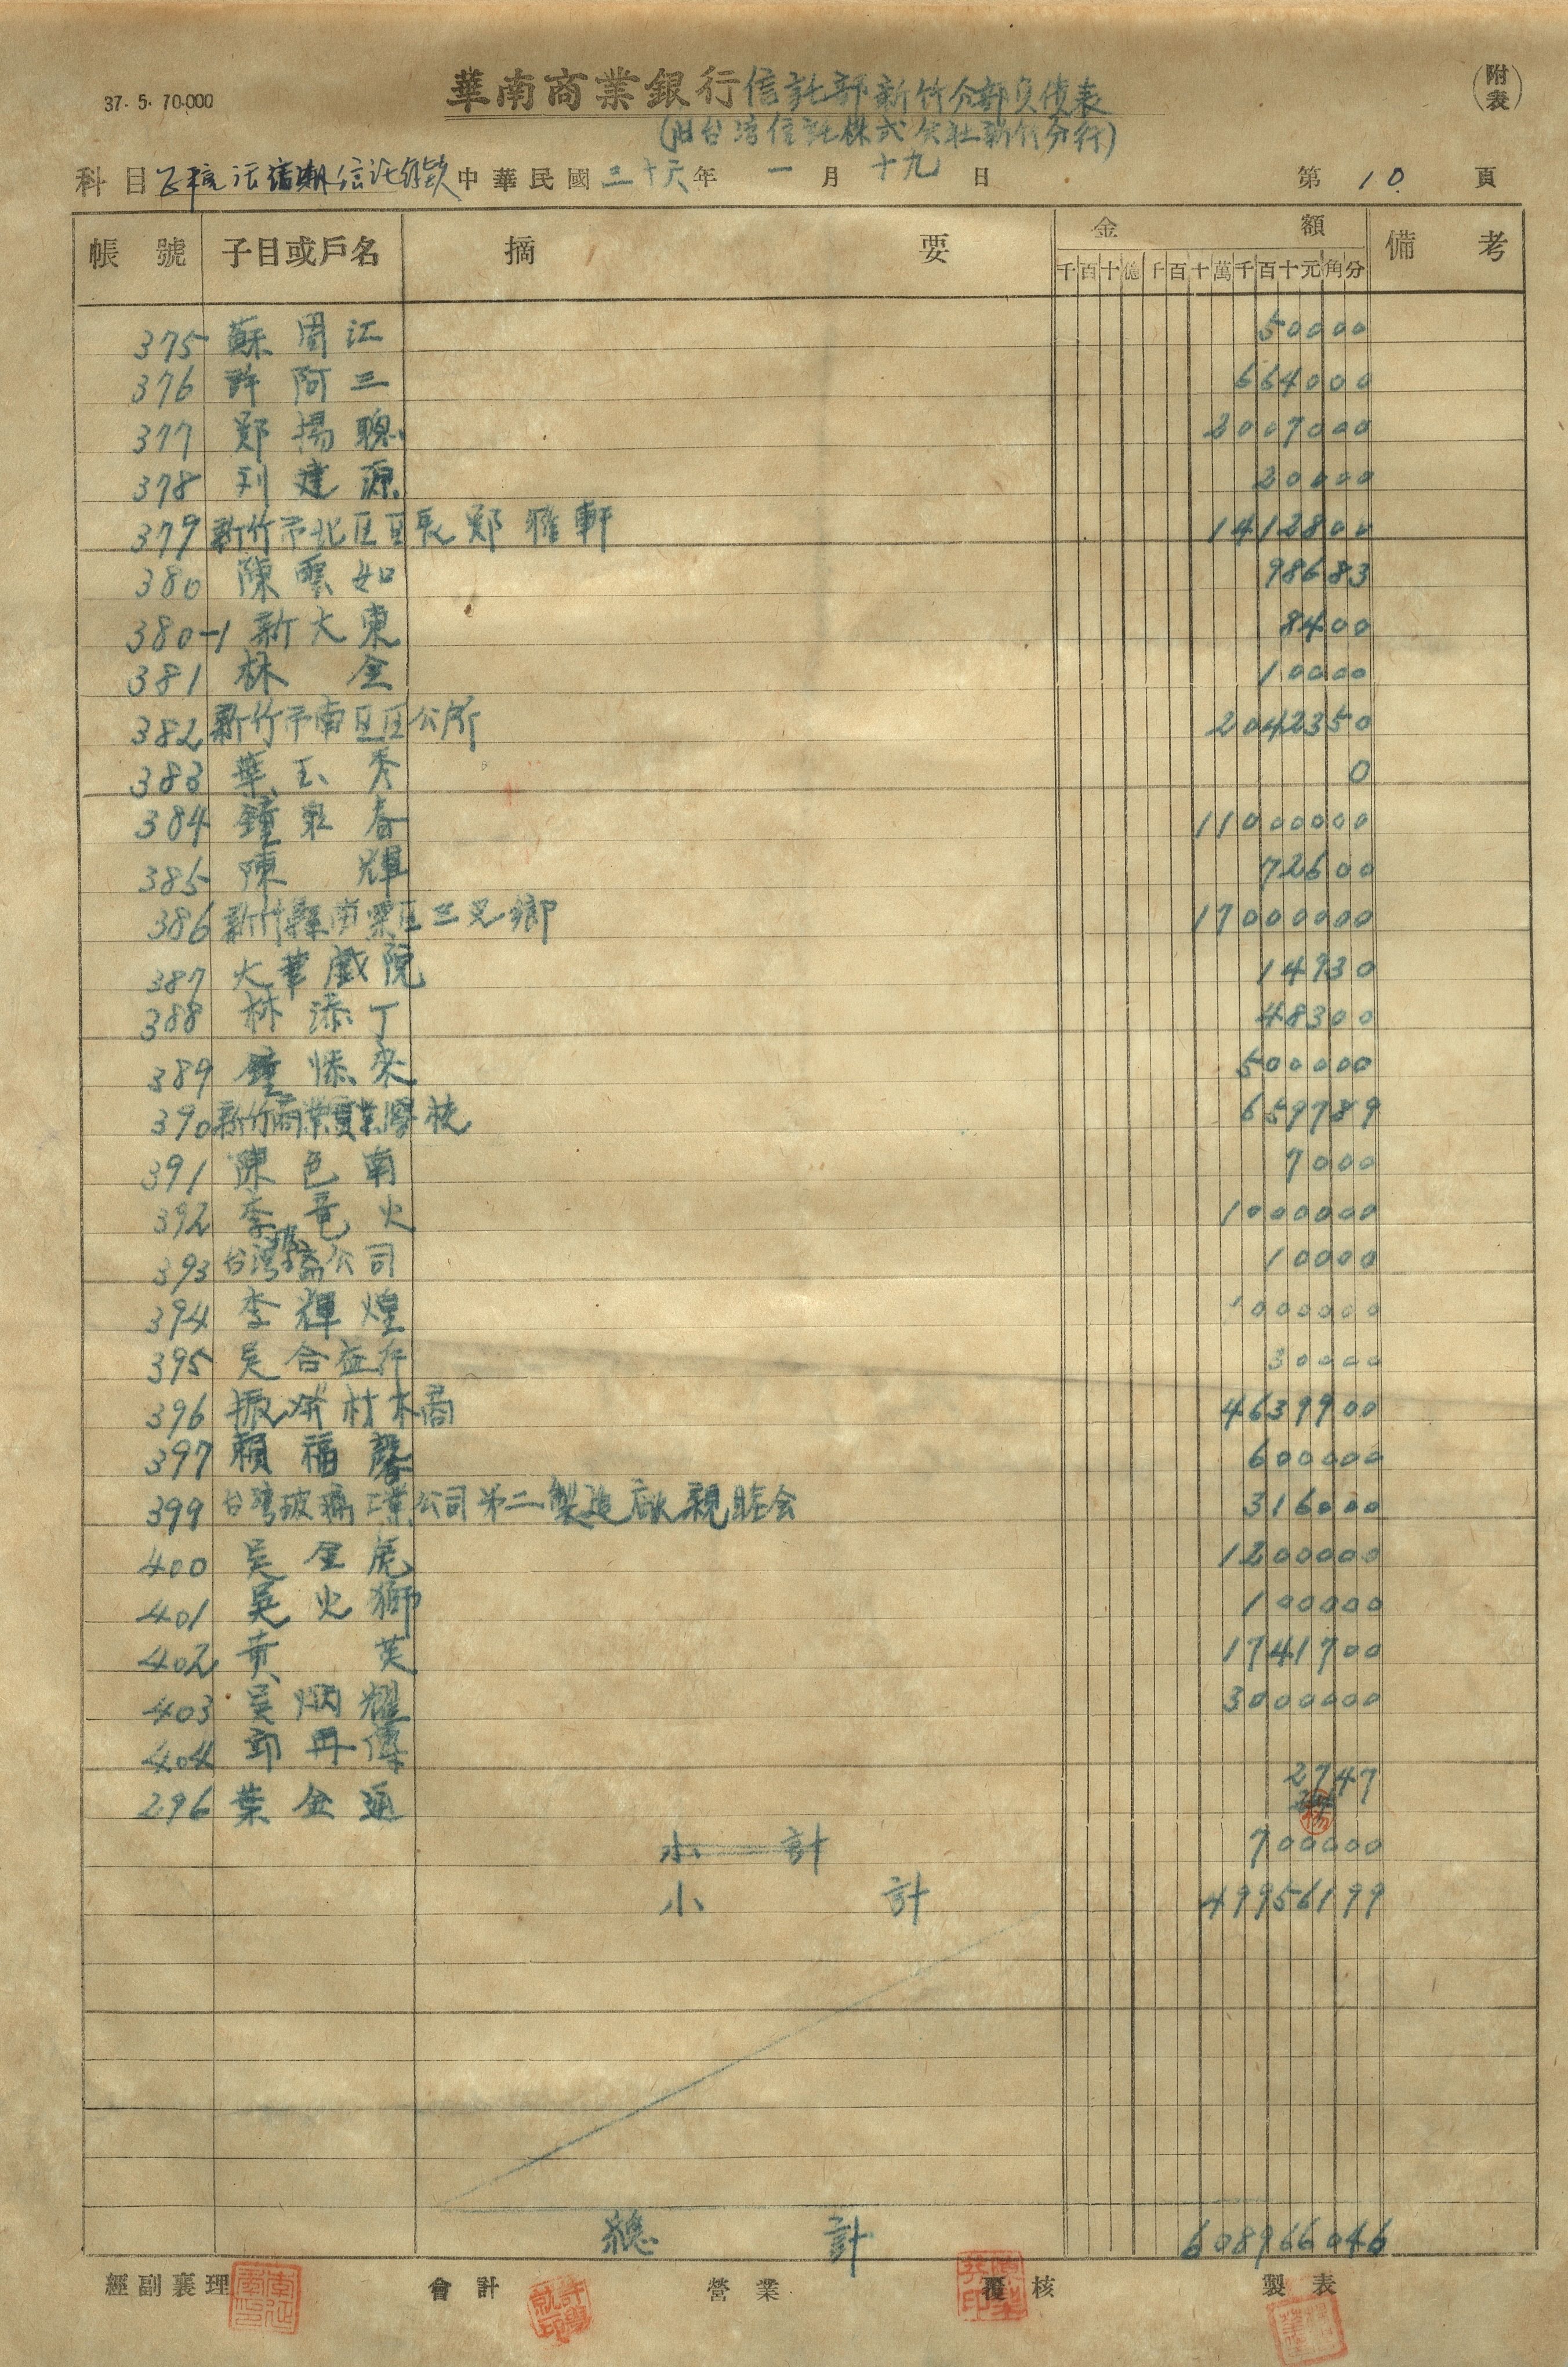 37. 5. 70.000
華南商業銀行信託部新竹分部負債表
(附表)
(旧台湾信託株式会社新竹分行)
科目 信託 中華民國三十六年一月十九日 第10頁
帳號 子目或戶名 摘要 金額 備考
千百十億千百十萬千百十元角分
375 蘇周江 50000
376 許阿三 664000
377 鄭揚聰 3007000
378 刘建源 20000
379 新竹市北区区長鄭雅軒 1412800
380 陳雲如 98683
380-1 新大東 8400
381 林金 10000
382 新竹市南区区公所 2042350
383 葉玉秀 0
384 鐘泉春 11000000
385 陳輝 72600
386 新竹縣 区三 鄉 17000000
387 大華戲院 14930
388 林添丁 48300
389 鐘添來 500000
390 新竹商業職業學校 659789
391 陳色南 7000
392 李竜火 1000000
393 台湾 公司 10000
394 李輝煌 1000000
395 吳合益行 30000
396 振成材木商 4639900
397 賴福馨 600000
399 台湾玻璃工業公司第二製造廠親睦会 316000
400 吳金虎 1200000
401 吳火獅 100000
402 黃英 1741700
403 吳炳耀 3000000
404 郭再傳 2747
296 葉金通
小計 700000
小計 49956199
總計 608966046
經副襄理 會計 營業 覆核 製表